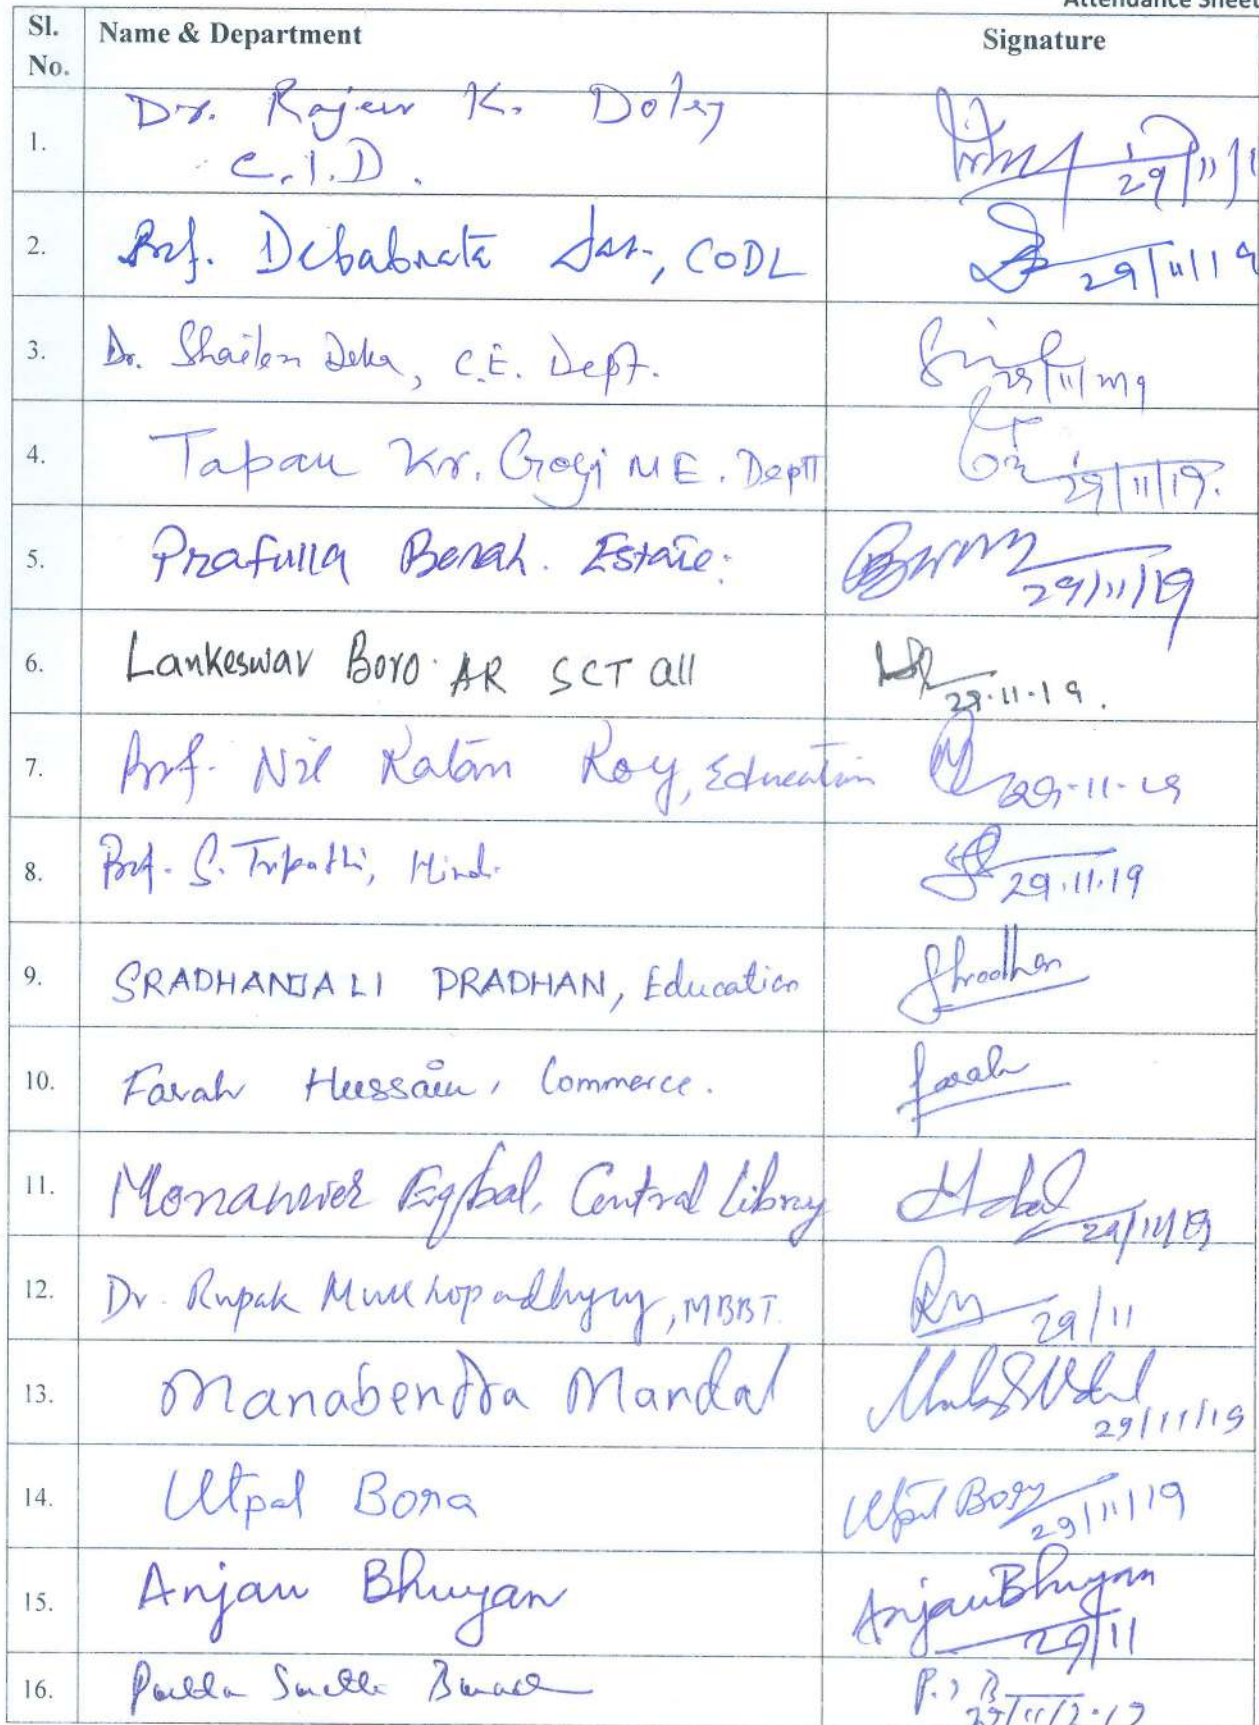 Attendance Sheet
Sl. No. Name & Department Signature
1. Dr. Rajeev K. Doley
C.I.D. 29/11/1
2. Prof. Debabrata Das, CODL 29/11/19
3. Dr. Shailen Deka, C.E. Dept. 29/11/2019
4. Tapan Kr. Gogoi ME. Deptt 29/11/19.
5. Prafulla Borah. Estate. 29/11/19
6. Lankeswar Boro. AR SCT all 29.11.19.
7. Prof. Nil Ratan Roy, Education 29-11-19
8. Prof. S. Tripathi, Hindi 29.11.19
9. SRADHANJALI PRADHAN, Education
10. Farah Hussain, Commerce. Farah
11. Monawwer Eqbal, Central Library 29/11/19
12. Dr. Rupak Mukhopadhyay, MBBT. 29/11
13. Manabendra Mandal 29/11/19
14. Utpal Bora Utpal Bora 29/11/19
15. Anjan Bhuyan Anjan Bhuyan
29/11
16. 29/11/2019